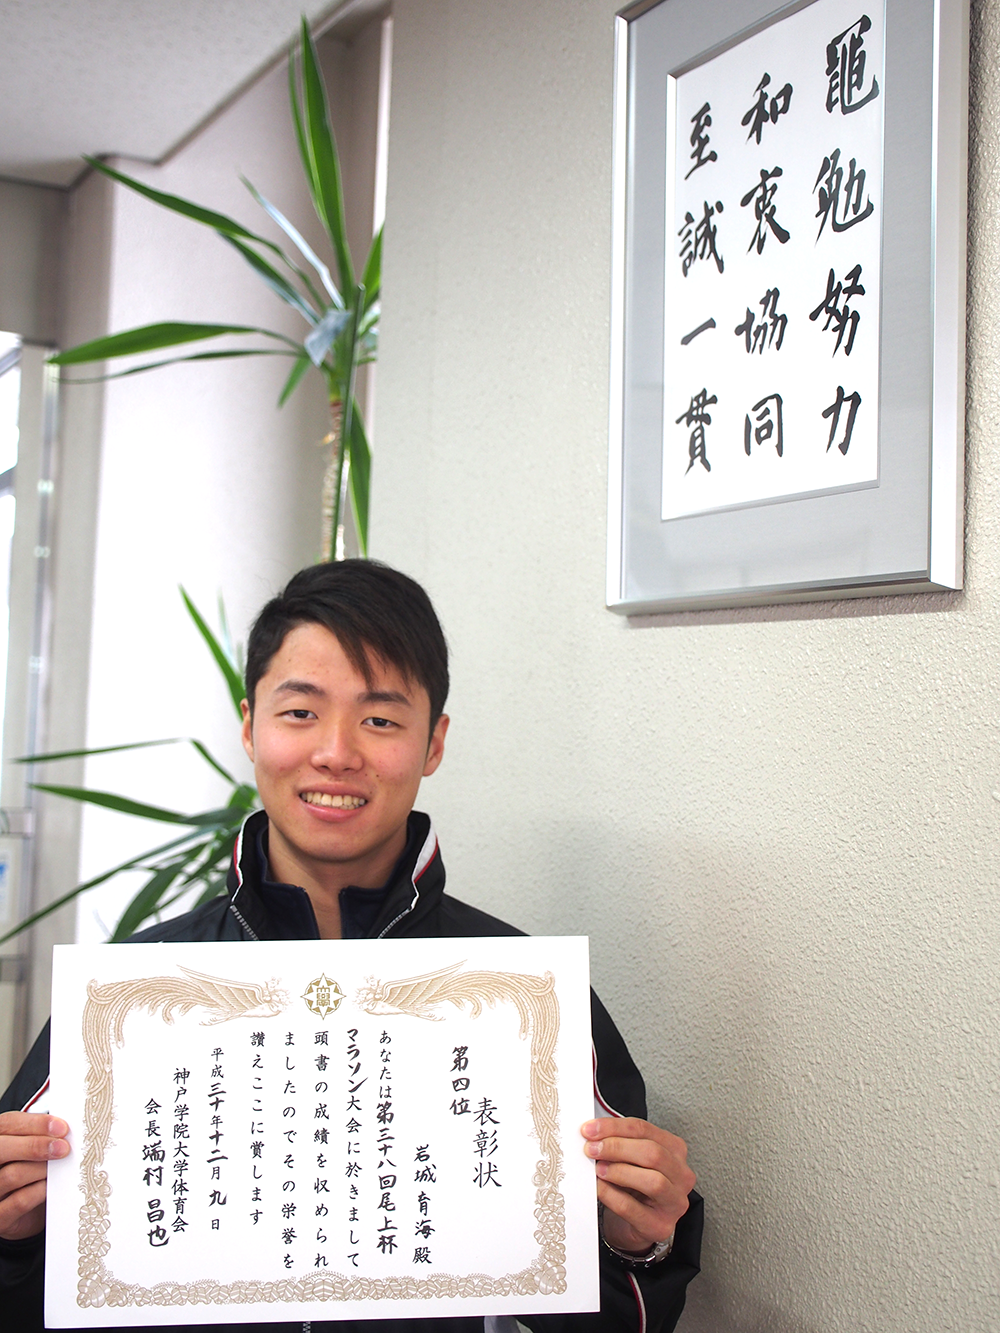 黽勉努力
和衷協同
至誠一貫
表彰状
第四位
岩城育海殿
あなたは第三十八回尾上杯
マラソン大会に於きまして
頭書の成績を収められ
ましたのでその栄誉を
讃えここに賞します
平成三十年十二月九日
神戸学院大学体育会
会長端村昌也